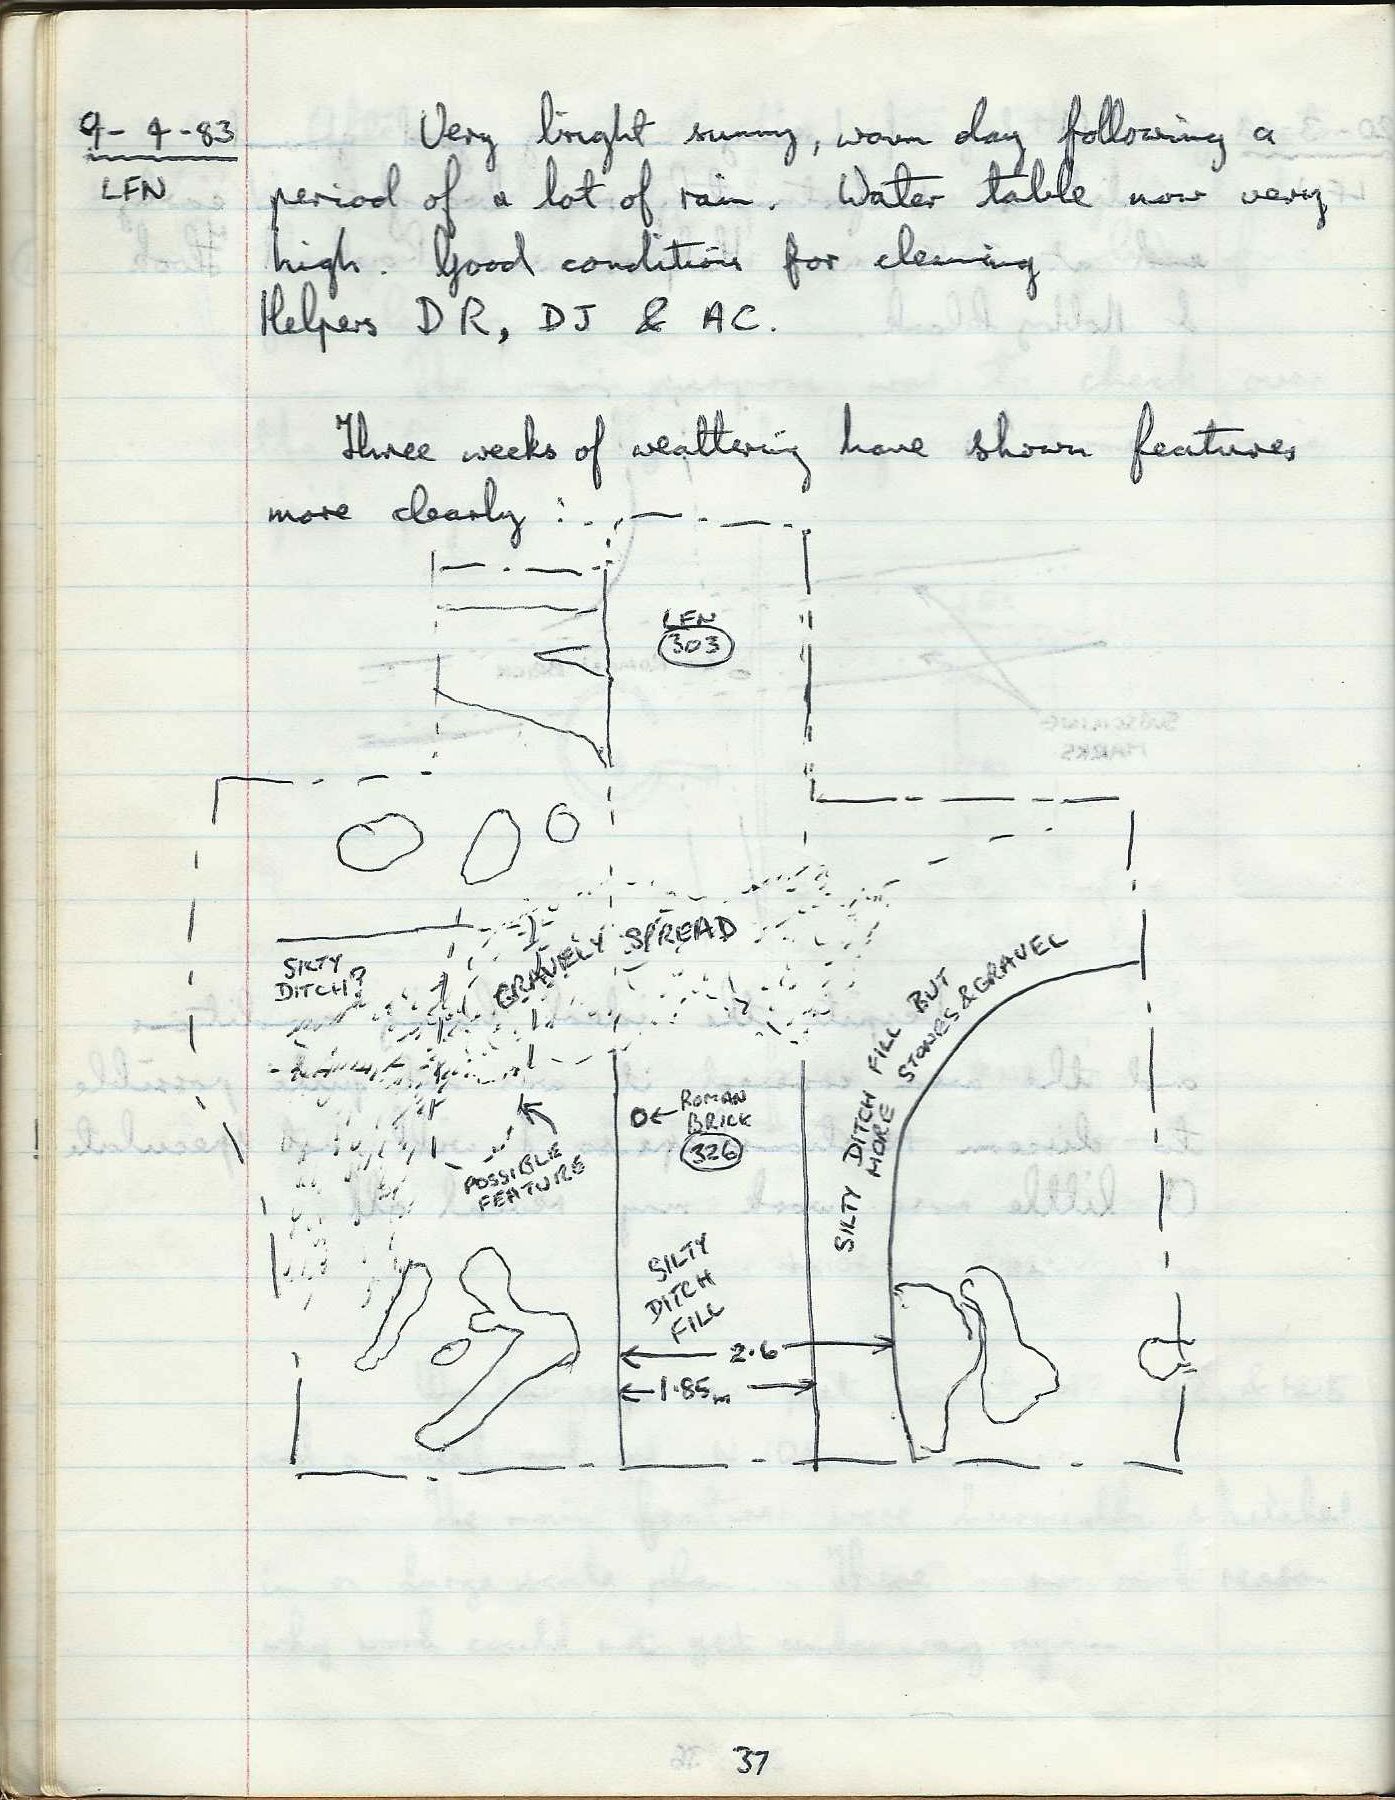 9-4-83
LFN
Very bright sunny, warm day following a
period of a lot of rain. Water table now very
high. Good conditions for cleaning
Helpers DR, DJ & AC.
Three weeks of weathering have shown features
more clearly :
LFN
303
GRAVELY SPREAD
SILTY
DITCH?
SILTY DITCH FILL BUT
MORE STONES & GRAVEL
ROMAN
BRICK
326
POSSIBLE
FEATURE
SILTY
DITCH
FILL
2.6
1.85m
37